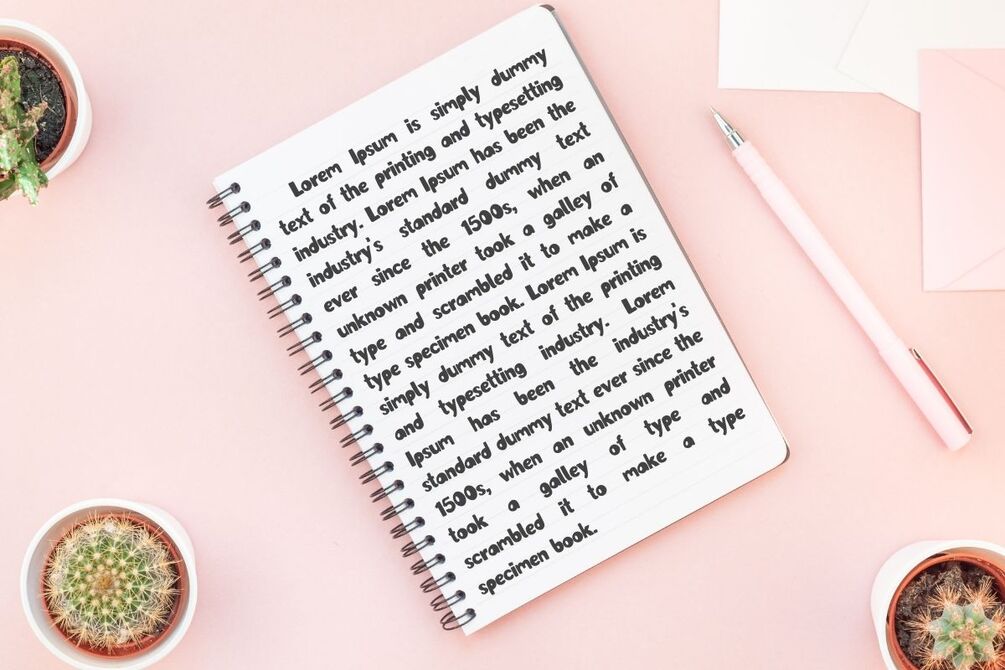 Lorem Ipsum is simply dummy
text of the printing and typesetting
industry. Lorem Ipsum has been the
industry's standard dummy text
ever since the 1500s, when an
unknown printer took a galley of
type and scrambled it to make a
type specimen book. Lorem Ipsum is
simply dummy text of the printing
and typesetting industry. Lorem
Ipsum has been the industry's
standard dummy text ever since the
1500s, when an unknown printer
took a galley of type and
scrambled it to make a type
specimen book.